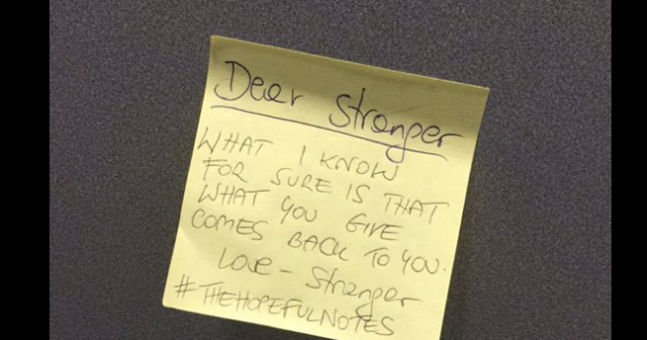 Dear Stranger
WHAT I KNOW
FOR SURE IS THAT
WHAT YOU GIVE
COMES BACK TO YOU.
Love - Stranger
#THEHOPEFULNOTES